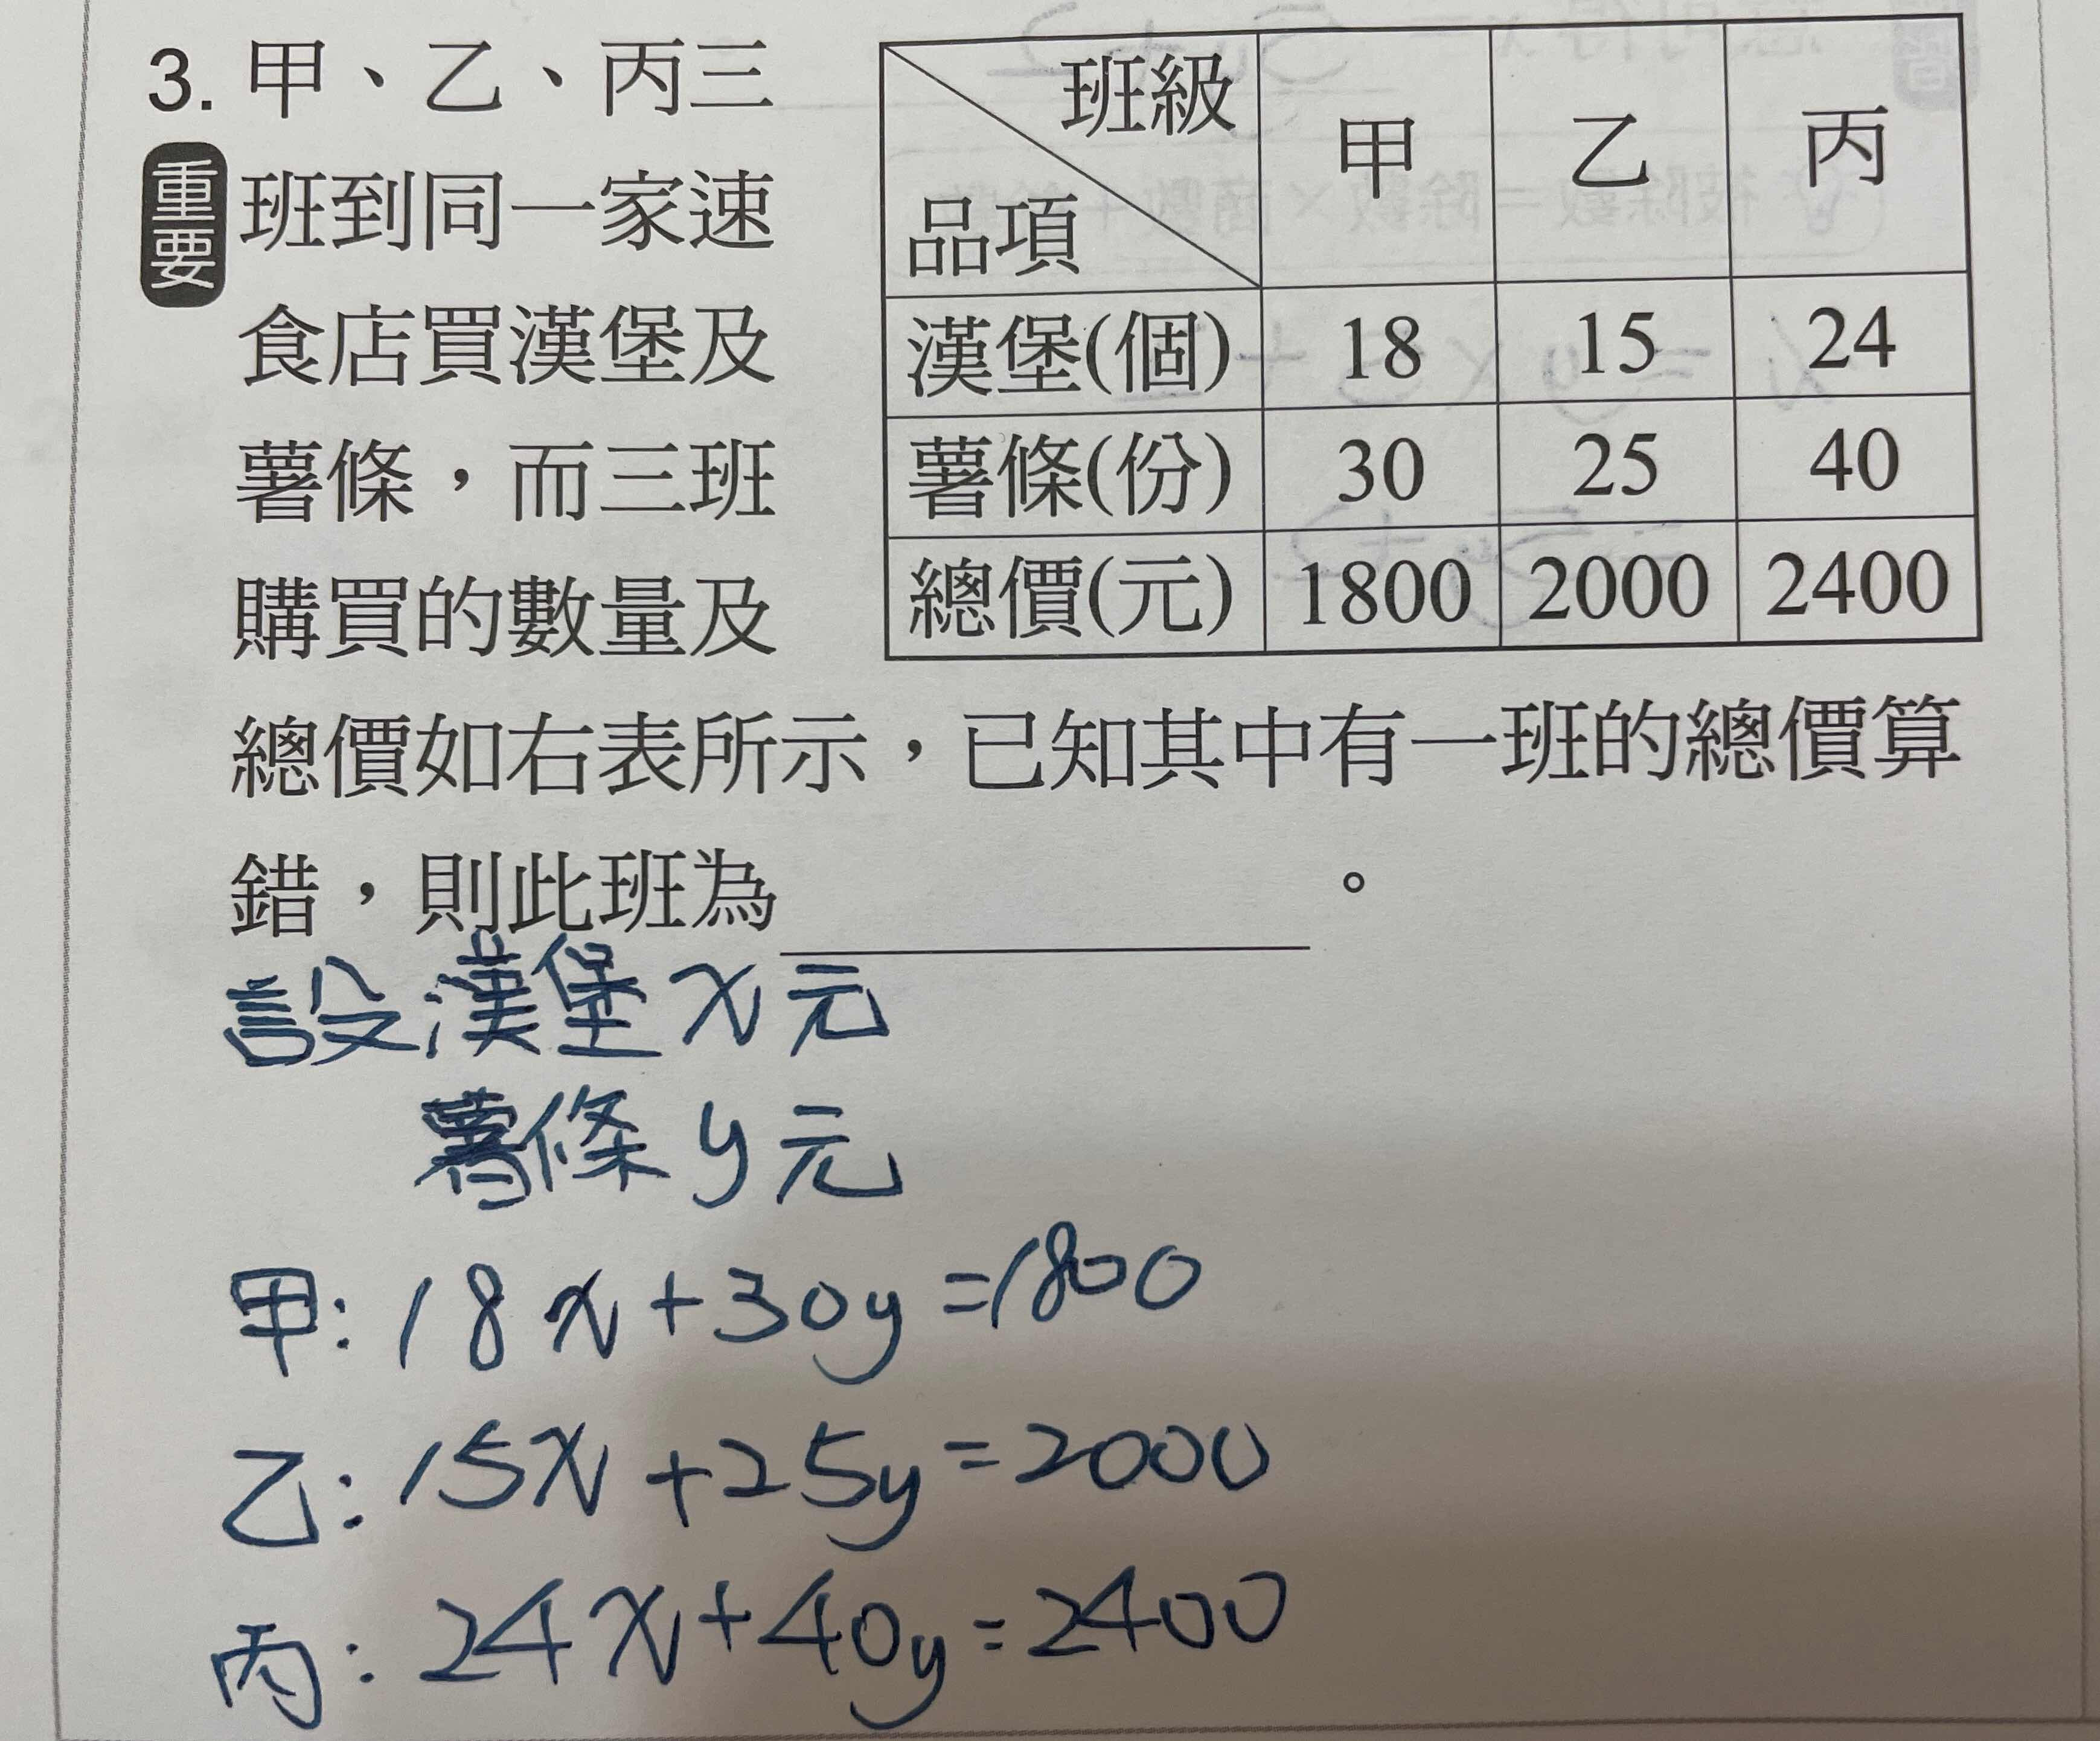 3. 甲、乙、丙三
重要
班到同一家速
食店買漢堡及
薯條，而三班
購買的數量及
總價如右表所示，已知其中有一班的總價算
錯，則此班為＿＿＿＿＿＿。
班級 甲 乙 丙
品項
漢堡(個) 18 15 24
薯條(份) 30 25 40
總價(元) 1800 2000 2400
設漢堡x元
薯條y元
甲：18x+30y=1800
乙：15x+25y=2000
丙：24x+40y=2400